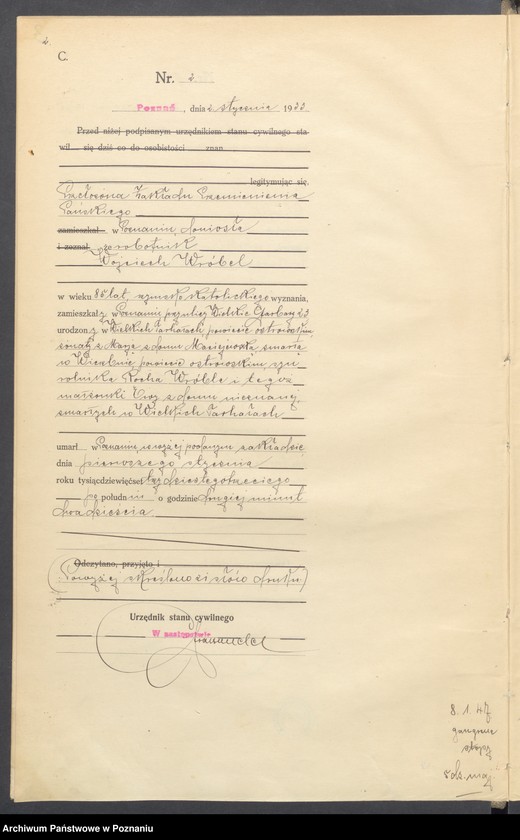 2.
C.
Nr. 2
Poznań, dnia 2 stycznia 1933
Przed niżej podpisanym urzędnikiem stanu cywilnego sta-
wił się dziś co do osobistości znan
legitymując się,
Zakładu Przemienienia
Pańskiego
zamieszkał w Poznaniu, doniosła
i zeznał że robotnik
Wojciech Wróbel
w wieku 80 lat, rzymsko katolickiego wyznania,
zamieszkały w Poznaniu przy ulicy Wielkie Garbary 23
urodzony w Wielkich Tarchałach, powiecie ostrowskim
żonaty z z domu zmarłą
w powiecie ostrowskim, syn
rolnika Rocha Wróbla i tegoż
małżonki z domu nieznanej
zmarłych w Wielkich Tarchałach
umarł w Poznaniu, w wyżej podanym zakładzie
dnia pierwszego stycznia
roku tysiącdziewięćset trzydziestego trzeciego
po południu o godzinie drugiej minut
dwadzieścia.
Odczytano, przyjęto i
(Powyżej skreślono słów druku)
Urzędnik stanu cywilnego
W zastępstwie
8. 1. 47
Archiwum Państwowe w Poznaniu